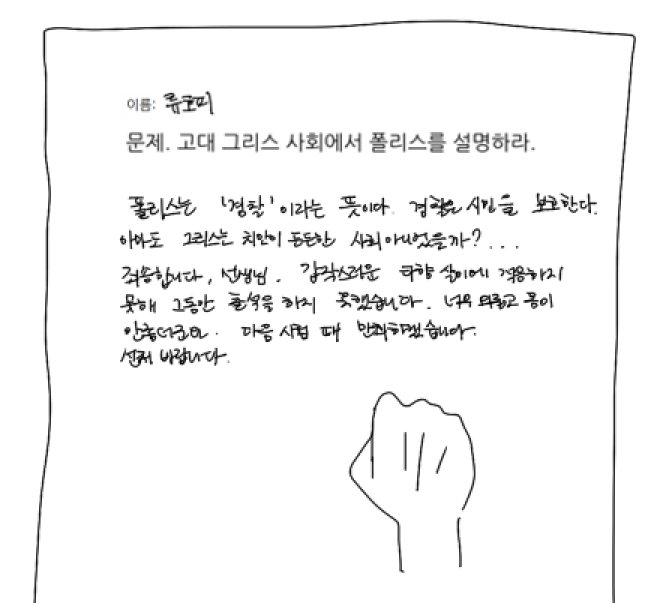 이름: 류코피
문제. 고대 그리스 사회에서 폴리스를 설명하라.
폴리스는 '경찰'이라는 뜻이다. 경찰은 시민을 보호한다.
아마도 그리스는 치안이 든든한 사회 아니었을까?...
죄송합니다, 선생님. 갑작스러운 타향 살이에 적응하지
못해 그동안 출석을 하지 못했습니다. 너무 외롭고 몸이
안좋더군요. 다음 시험 때 만회하겠습니다.
선처 바랍니다.